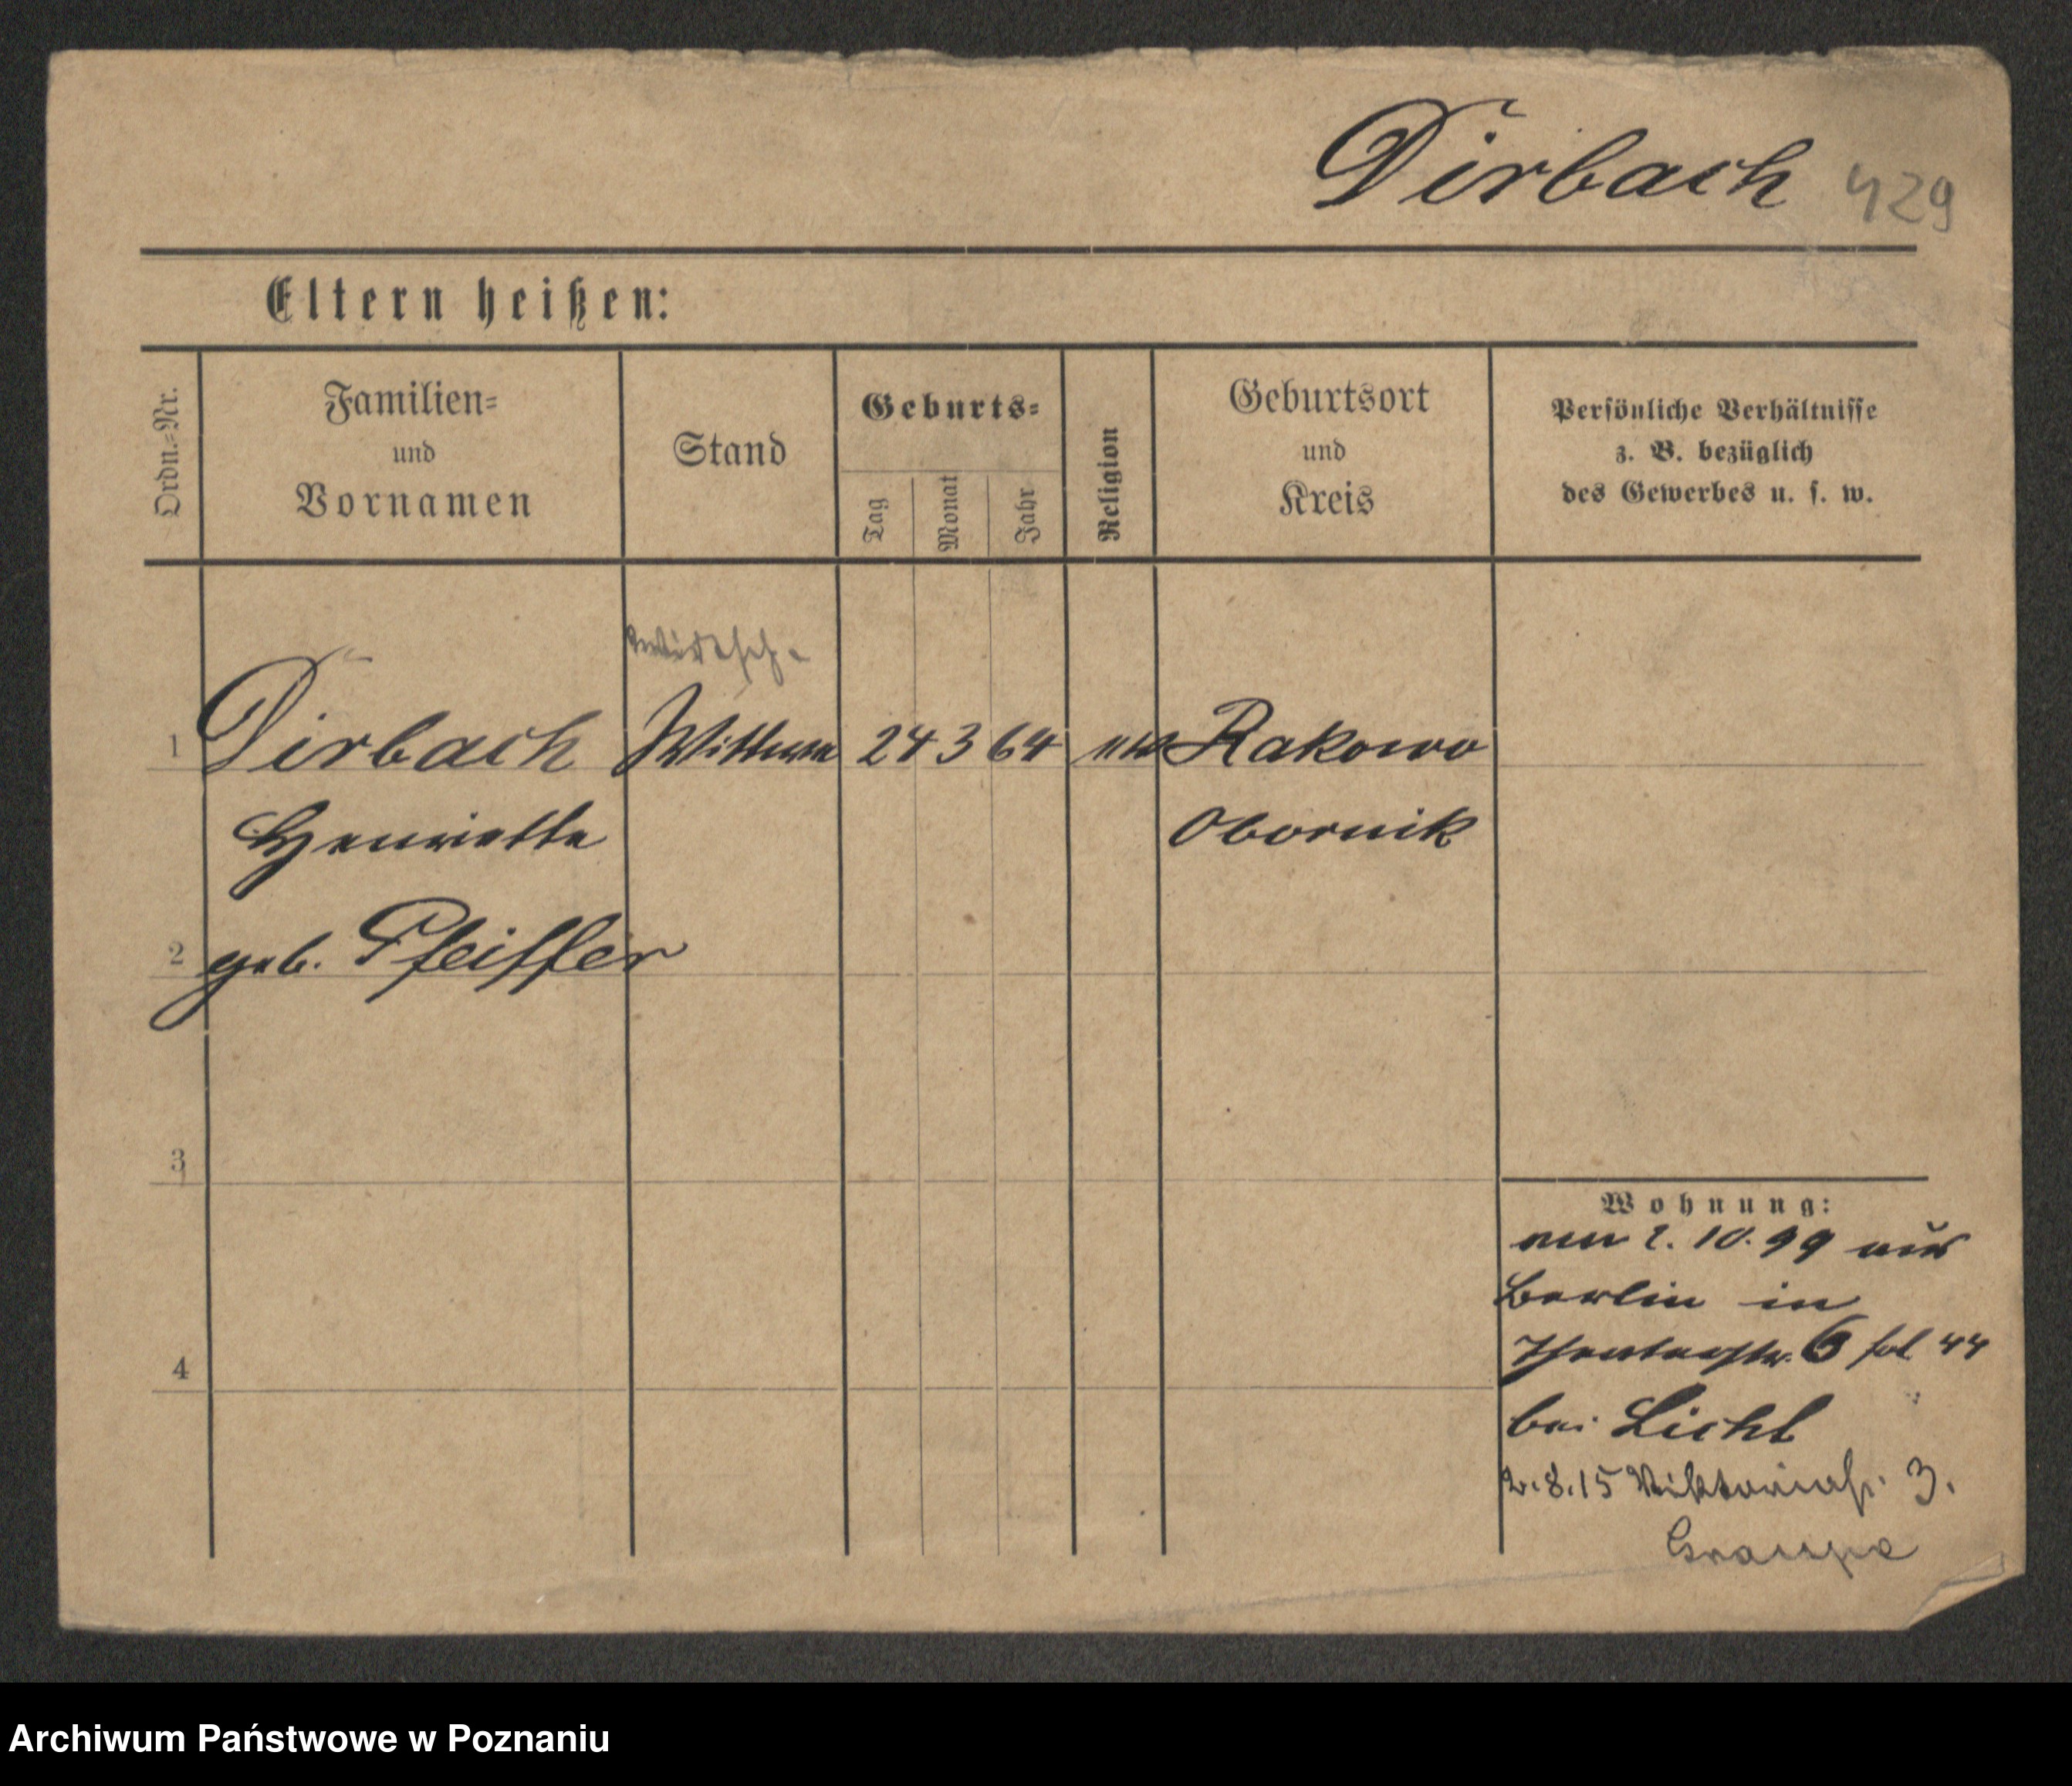 Dirbach 429
Eltern heißen:
Ordn.=Nr.
Familien=
und
Vornamen
Stand
Geburts=
Tag
Monat
Jahr
Religion
Geburtsort
und
Kreis
Persönliche Verhältnisse
z. B. bezüglich
des Gewerbes u. s. w.
Wirtsch.
1 Dirbach Wittwe 24 3 64 Rakowo
Henriette Obornik
2 geb. Pfeiffer
3
4
Wohnung:
am 2. 10. 99 aus
Berlin in
Theaterstr. 6 fol 44
bei Licht
2.8.15 Viktoriastr. 3.
Graupe
Archiwum Państwowe w Poznaniu